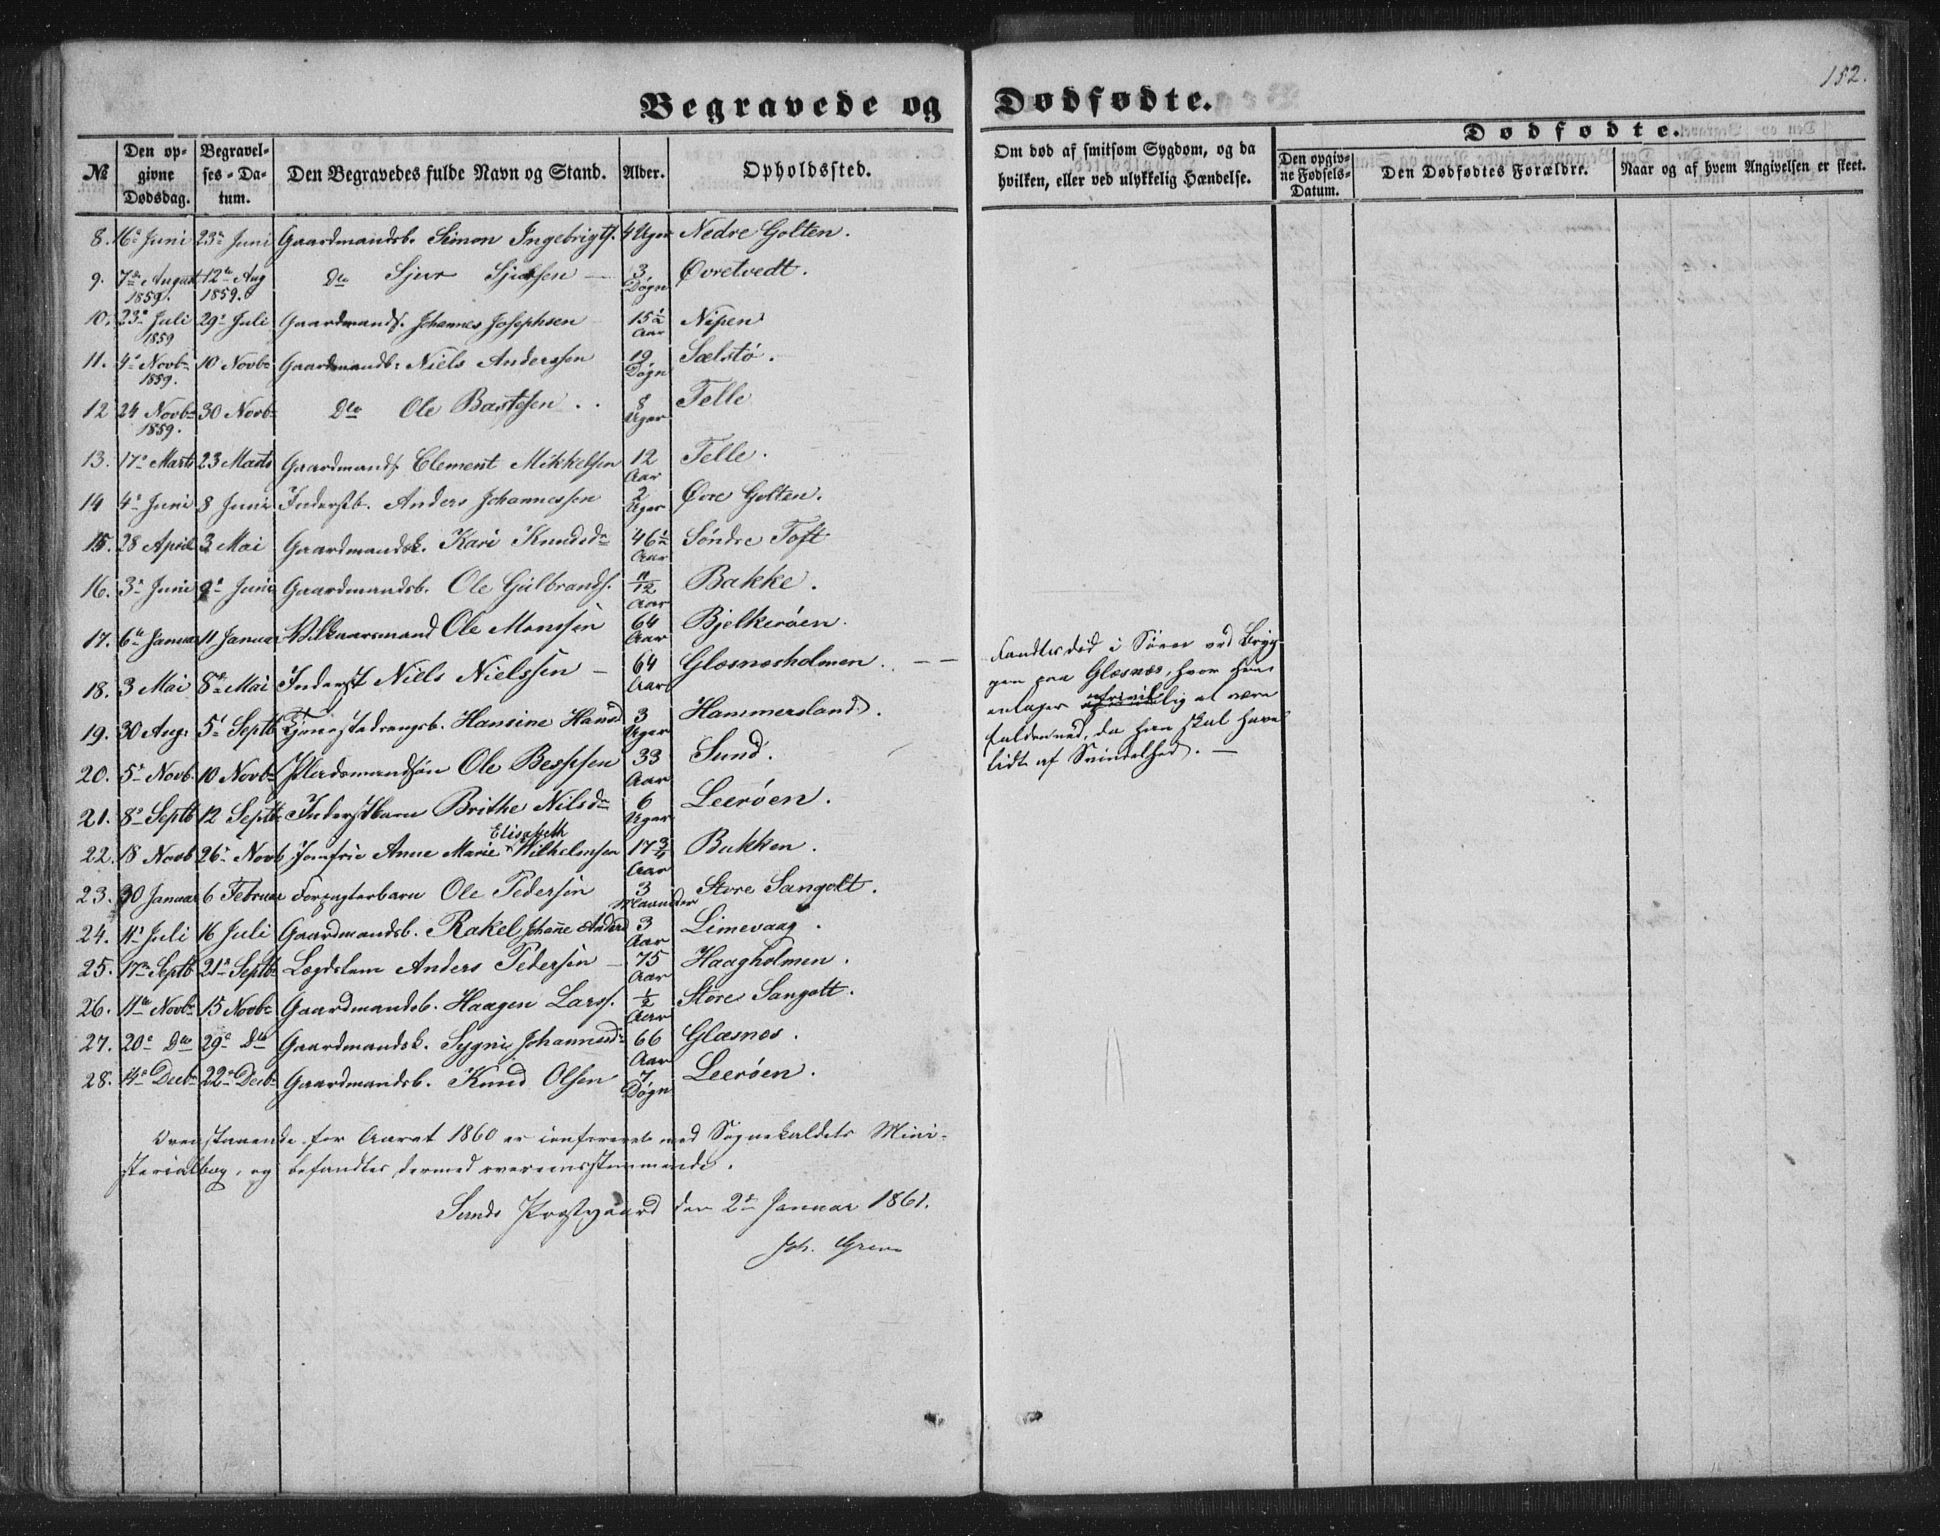 152.
Begravede og Dødfødte.
№ Den opgivne Dødsdag. Begravelses-Datum. Den Begravedes fulde Navn og Stand. Alder. Opholdssted. Om død af smitsom Sygdom, og da hvilken, eller ved ulykkelig Hændelse.
Dødfødte.
Den opgivne Fødsels-Datum. Den Dødfødtes Forældre. Naar og af hvem Angivelsen er skeet.
8. 16de Juni 23de Juni Gaardmandsb. Simon Ingebrigts. 4 Uger Nedre Golten.
9. 7de August 1859. 12te Aug 1859. Do Sjur Sjursen 3 Døgn Øvretvedt.
10. 23de Juli 1859 29de Juli Gaardmands. Johannes Josephsen 15½ Aar Nipen
11. 4de Novbr 1859. 10 Novbr Gaardmandsb: Niels Anderssen 19 Døgn Sælstø.
12 24 Novbr 1859. 30 Novbr Dto Ole Bartesen 8 Uger Telle
13. 17de Marts 23 Marts Gaardmands. Clement Mikkelsen 12 Aar Telle.
14 4de Juni 8 Juni Inderstb. Anders Johannessen 2 Uger Øvre Golten.
15. 28 April 3 Mai Gaardmandsk. Kari Knudsdr 46½ Aar Søndre Toft
16. 3de Juni 9de Juni Gaardmandsb. Ole Gulbrands. 11/12 Aar Bakke.
17. 6te Januar 11 Januar Vilkaarsmand Ole Monssen 64 Aar Bjelkerøen.
18. 3 Mai 8de Mai Inderst Niels Nielssen 64 Aar Glesnesholmen. Fandtes død i Søen ved Bryg-
gen paa Glesnæs, hvor han
antages ufrivillig at være
falden ned, da han skal have
lidt af Svindelhed.
19. 30 Aug. 5te Septb Tjenestedrengsb. Hansine Hansd 3 Uger Hammersland.
20. 5te Novb. 10 Novbr Pladsmandssøn Ole 33 Aar Sund.
21. 8de Septb 12 Septb. Inderstbarn Brithe Nilsdr 6 Uger Leerøen.
22. 18 Novb 26de Novb Jomfru Anne Marie Elisabeth Wilhelmsen 17¾ Aar Bukken.
23. 30 Januar 6 Februar Forpagterbarn Ole Pedersen 3 Maaneder Store Sangolt.
24. 11te Juli 16 Juli Gaardmandsb. Rakel Johanne Andersd 3 Aar Limevaag.
25. 17de Septb 21de Septbr Lægdslem Anders Pedersen 75 Aar Haagholmen.
26. 11te Novbr 15 Novbr Gaardmandsb. Haagen Larss. ½ Aar Store Sangolt.
27. 20de Dto 29de Dto Gaardmandsk. Sygni Johannesdr 66 Aar Glæsnes.
28. 14de Decbr 22de Decbr Gaardmandsb. Knud Olsen 7 Døgn Leerøen.
Ovenstaaende for Aaret 1860 er confereret med Sognekaldets Mini-
sterialbog, og befandtes dermed overeensstemmende.
Sunds Præstegaard den 2den Januar 1861.
Joh. Greve